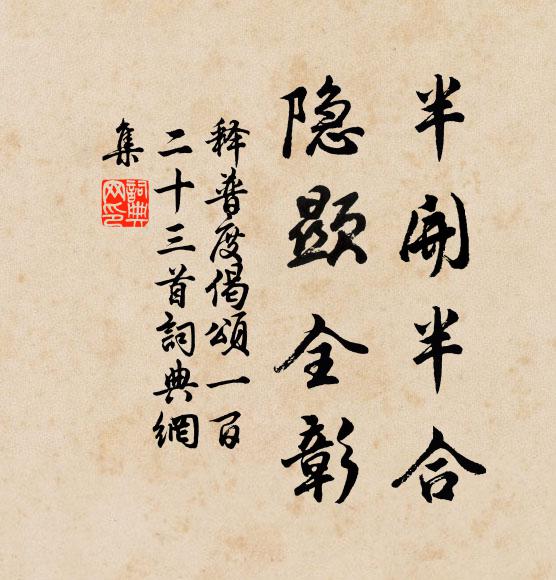 半開半合
隐顯全彰
释普度偈頌一百
二十三首詞典網
集
詞典网印